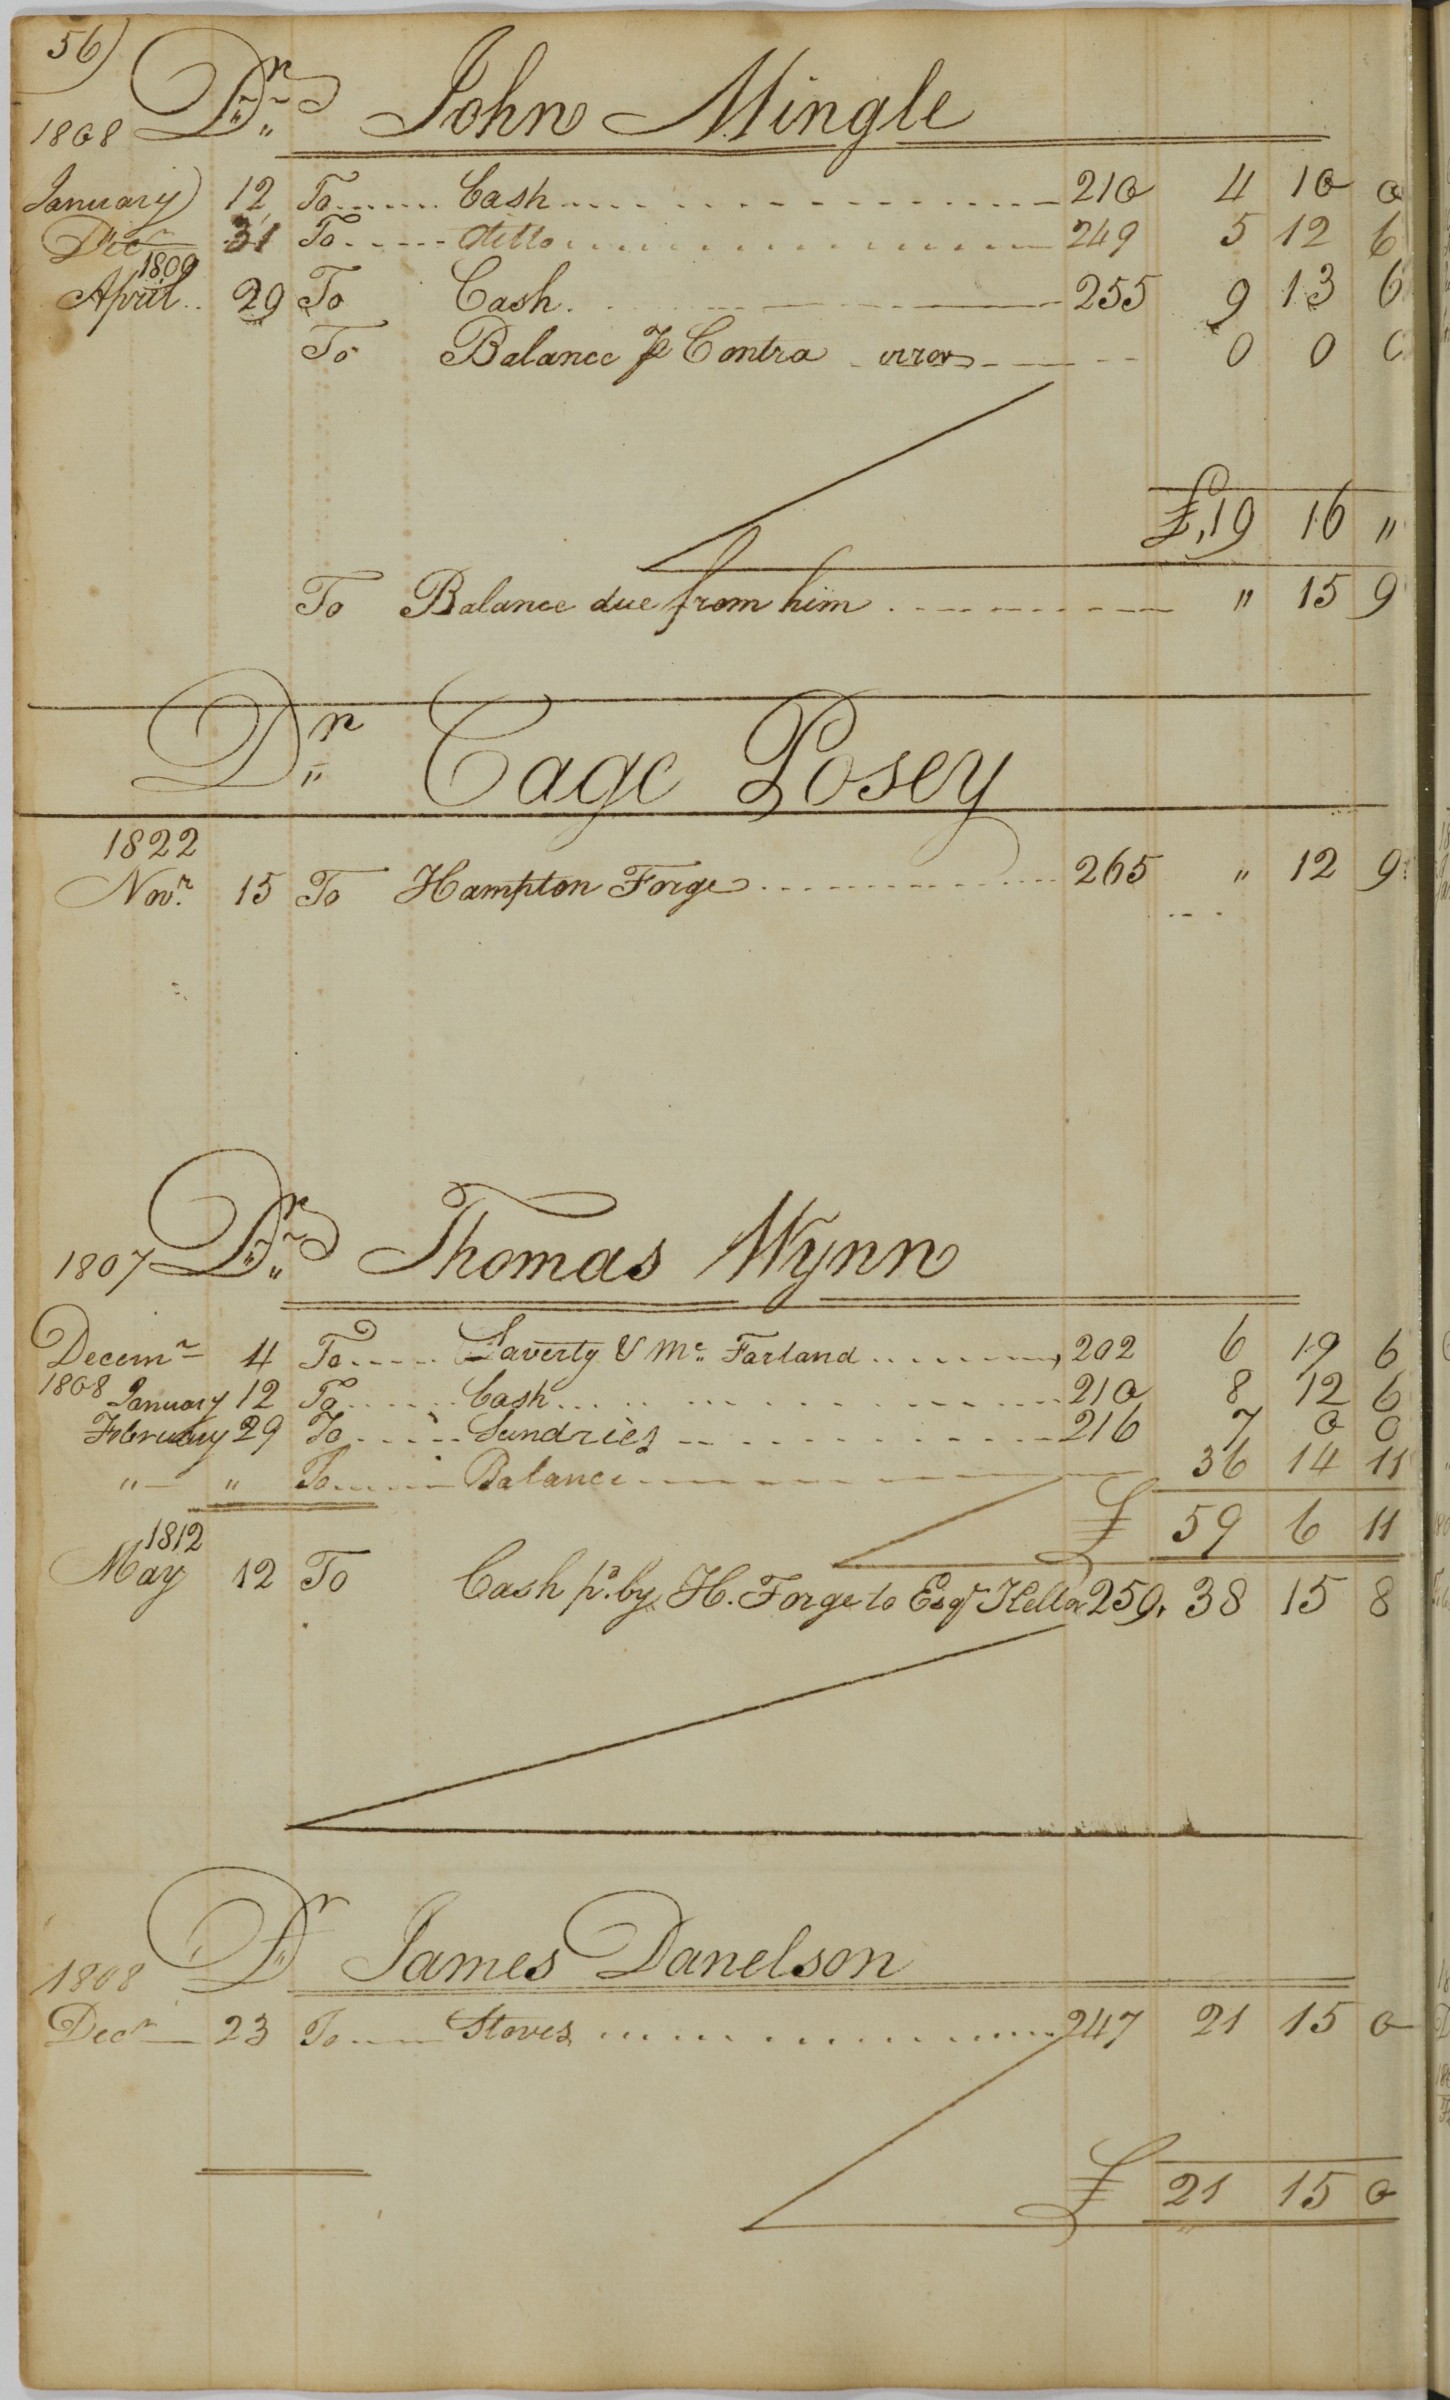 56)
1808 Dr. John Mingle
January 12 To Cash 210 4 10 0
Decr 31 To ditto 249 5 12 6
1809
April 29 To Cash 255 9 13 6
To Balance ⅌ Contra error 0 0 0
£ 19 16 "
To Balance due from him " 15 9
Dr. Cage Posey
1822
Novr. 15 To Hampton Forge 265 " 12 9
1807 Dr. Thomas Wynn
Decemr 4 To Laverty & Mc. Farland 202 6 19 6
1808 January 12 To Cash 210 8 12 6
February 29 To Sundries 216 7 0 0
" " To Balance 36 14 11
£ 59 6 11
1812
May 12 To Cash pd. by H. Forge to Esqr 259 38 15 8
1808 Dr James Danelson
Decr 23 To Stoves 247 21 15 0
£ 21 15 0